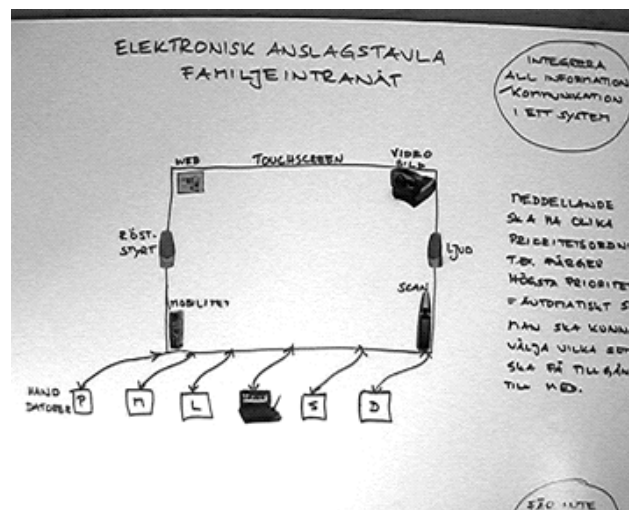 ELEKTRONISK ANSLAGSTAVLA
FAMILJEINTRANÄT
INTEGRERA
ALL INFORMATION
/KOMMUNIKATION
I ETT SYSTEM
WEB
TOUCHSCREEN
VIDEO
BILD
RÖST-
STYRT
LJUD
MOBILITET
SCAN
HAND
DATORER
P
M
L
S
D
MEDDELLANDE
SKA HA OLIKA
PRIORITETSORDNI
T.EX. FÄRGER
HÖGSTA PRIORITET
= AUTOMATISKT S
MAN SKA KUNNA
VÄLJA VILKA SOM
SKA FÅ TILLGÅN
TILL MED.
INTE